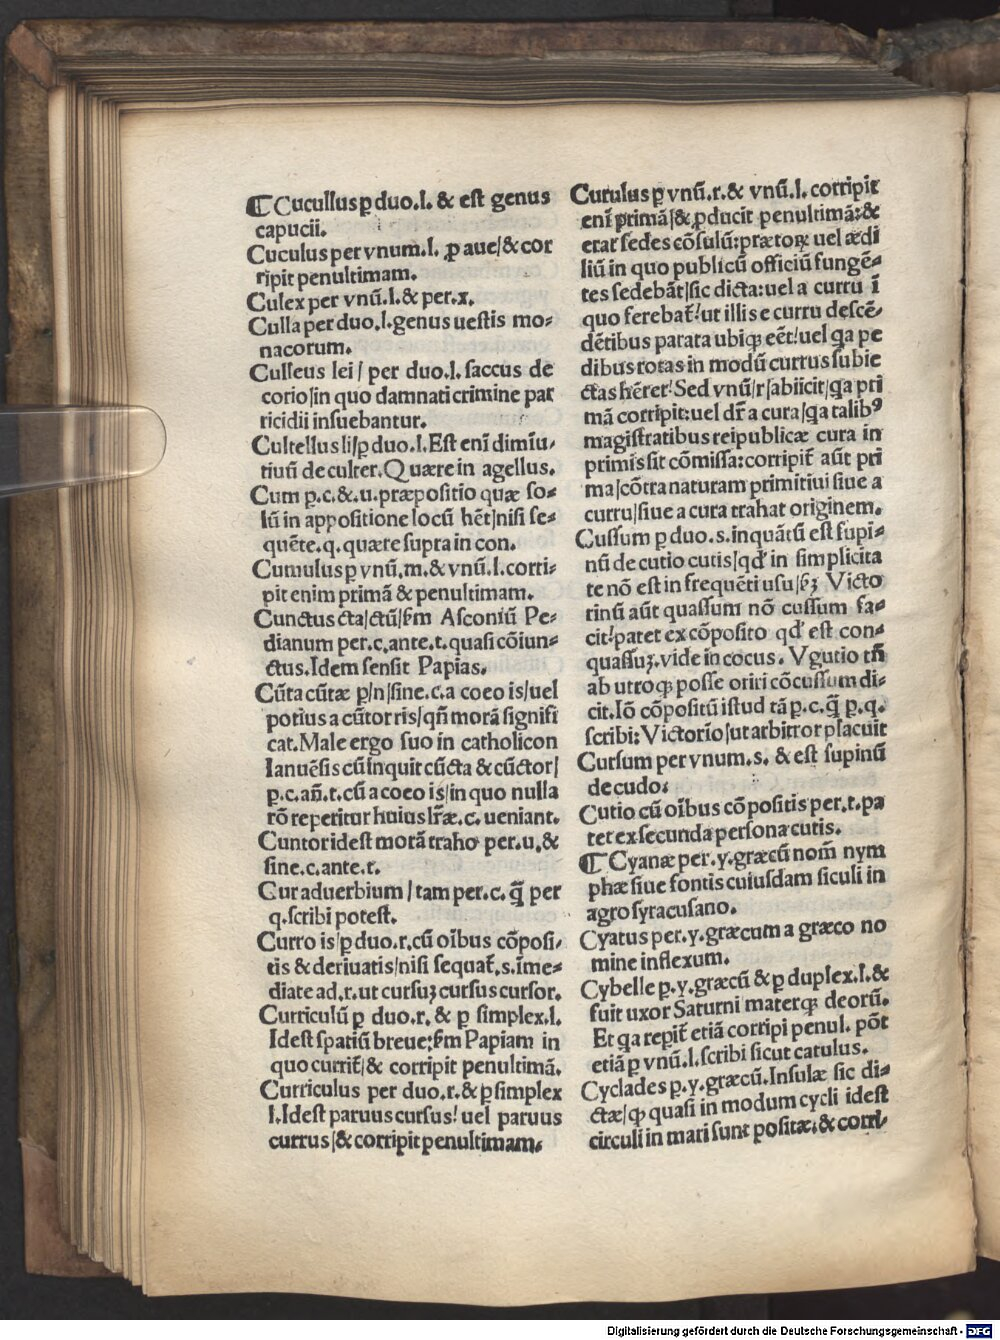 ¶ Cucullus ꝑ duo.l. & est genus
capucii.
Cuculus per vnum.l. ꝓ aue/& cor
ripit penultimam.
Culex per vnū.l.& per.x.
Culla per duo.l.genus uestis mo-
nacorum.
Culleus lei/ per duo.l. saccus de
corio/in quo damnati crimine par
ricidii insuebantur.
Cultellus li/ꝑ duo.l.Est enī dimīu-
tiuū de culter.Quære in agellus.
Cum ꝑ.c.&.u.præpositio quæ so-
lū in appositione locū hēt/nisi se-
quēte.q.quære supra in con.
Cumulus ꝑ vnū.m.& vnū.l.corri-
pit enim primā & penultimam.
Cunctus cta/ctū/ẜm Asconiū Pe-
dianum per.c.ante.t.quasi cōiun-
ctus.Idem sensit Papias.
Cūta cūtæ ꝑ/n/sine.c.a coeo is/uel
potius a cūtor ris/qñ morā signifi
cat.Male ergo suo in catholicon
Ianuēsis cū inquit cūcta & cūctor/
ꝑ.c.añ.t.cū a coeo is/in quo nulla
rō reperitur huius lr̃æ.c.ueniant.
Cuntor idest morā traho per.u.&
sine.c.ante.t.
Cur aduerbium/tam per.c.q̄ per
q.scribi potest.
Curro is/ꝑ duo.r.cū oībus cōposi-
tis & deriuatis/nisi sequat̃.s.īme-
diate ad.r.ut cursuꝫ cursus cursor.
Curriculū ꝑ duo.r.& ꝑ simplex.l.
Idest spatiū breue:ẜm Papiam in
quo currit̃/& corripit penultimā.
Curriculus per duo.r.& ꝑ simplex
l.Idest paruus cursus! uel paruus
currus/& corripit penultimam.
Curulus ꝑ vnū.r.& vnū.l.corripit
enī primā/& ꝓducit penultimā:&
erat sedes cōsulū:prætoꝝ uel ædi
liū in quo publicū officiū fungē-
tes sedebāt/sic dicta:uel a curru ī
quo ferebat̃!ut illis e curru descē-
dētibus parata ubiqꝫ eēt!uel qa pe
dibus rotas in modū currus subie
ctas hēret!Sed vnū/r/abiicit/qa pri
mā corripit:uel dr̃ a cura/qa talibꝰ
magistratibus reipublicæ cura in
primis sit cōmissa:corripit̃ aūt pri
ma/cōtra naturam primitiui siue a
curru/siue a cura trahat originem.
Cussum ꝑ duo.s.inquātū est supi-
nū de cutio cutis/qd̓ in simplicita
te nō est in frequēti usu/ẜꝫ Victo
rinū aūt quassum nō cussum fa-
cit!patet ex cōposito qd̓ est con-
quassuꝫ.vide in cocus. Vgutio tñ
ab utroqꝫ posse oriri cōcussum di-
cit.Iō cōpositū istud tā ꝑ.c.q̄ ꝑ.q.
scribi:Victorio/ut arbitror placuit
Cursum per vnum.s. & est supinū
de cudo:
Cutio cū oībus cōpositis per.t.pa
tet ex secunda persona cutis.
¶ Cyanæ per.y.græcū nom̄ nym
phæ siue fontis cuiusdam siculi in
agro syracusano.
Cyatus per.y.græcum a græco no
mine inflexum.
Cybelle ꝑ.y.græcū & ꝑ duplex.l.&
fuit uxor Saturni materqꝫ deorū.
Et qa repit̃ etiā corripi penul. pōt
etiā ꝑ vnū.l.scribi sicut catulus.
Cyclades ꝑ.y.græcū.Insulæ sic di-
ctæ/qꝫ quasi in modum cycli idest
circuli in mari sunt positæ:& corri-
Digitalisierung gefördert durch die Deutsche Forschungsgemeinschaft - DFG